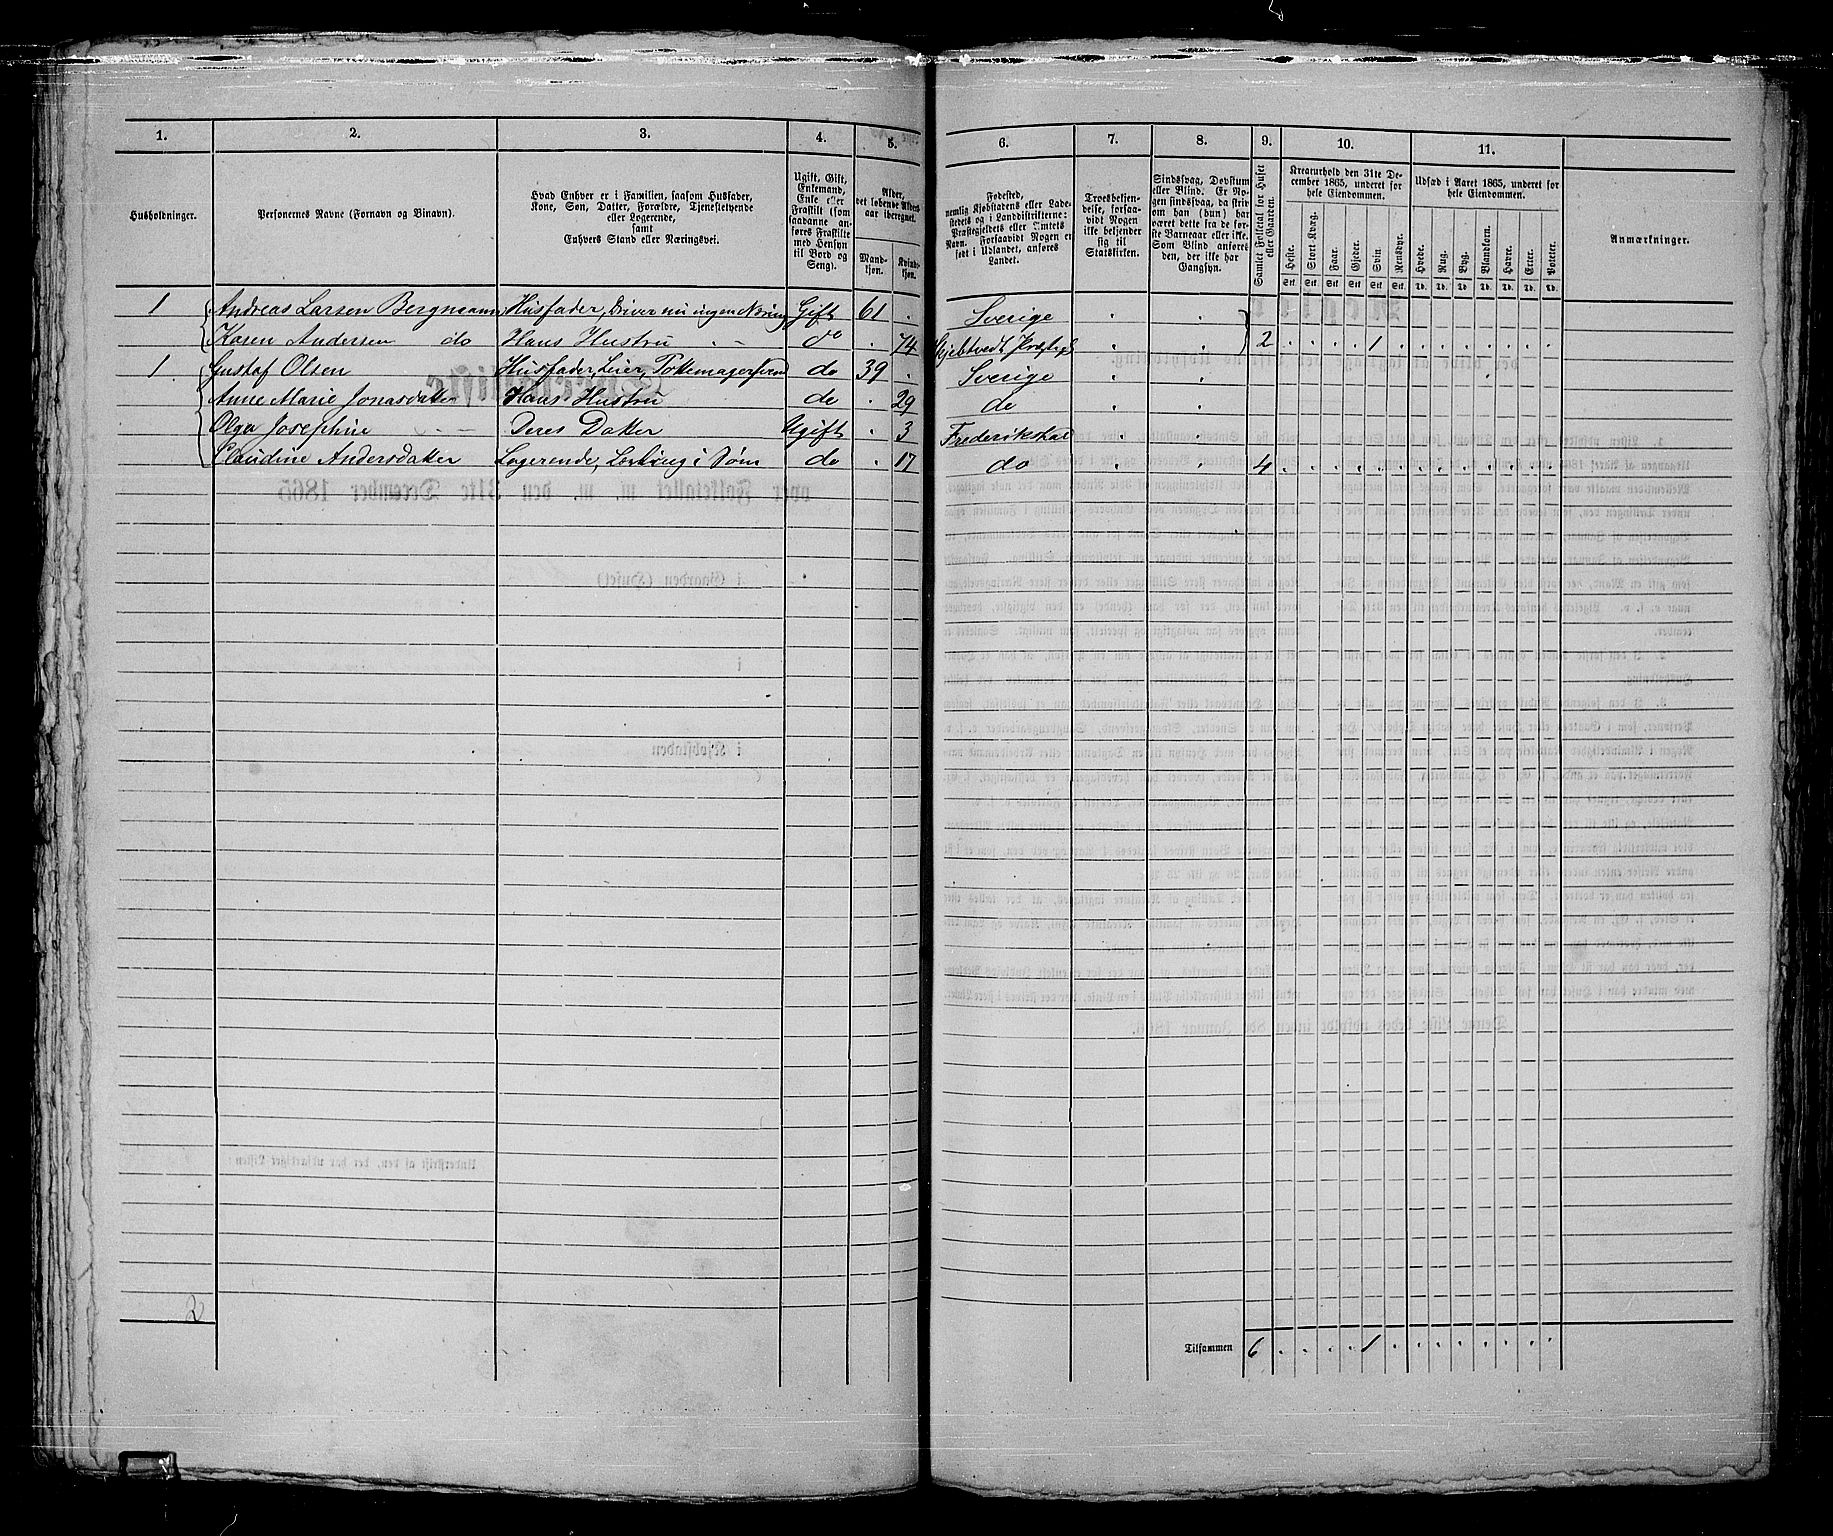 1. 2. 3. 4. 5. 6. 7. 8. 9. 10. 11.
Husholdninger.
Personernes Navne (Fornavn og Binavn).
Hvad Enhver er i Familien, saasom Husfader,
Kone, Søn, Datter, Forældre, Tjenestetyende
eller Logerende,
samt
Enhvers Stand eller Næringsvei.
Ugift, Gift,
Enkemand,
Enke eller
Fraskilt (som
saadanne an-
føres Fraskilte
med Hensyn
til Bord og
Seng).
Alder,
det løbende Alders-
aar iberegnet.
Mand-
kjøn.
Kvind-
kjøn.
Fødested,
nemlig Kjøbstadens eller Lade-
stedets og i Landdistrikterne:
Præstegjeldets eller Amtets
Navn. Forsaavidt Nogen er
født i Udlandet, anføres
Landet.
Troesbekjen-
delse, forsaa-
vidt Nogen
ikke bekjender
sig til
Statskirken.
Sindssvag, Døvstum
eller Blind. Er No-
gen sindssvag, da skriv
om han (hun) har
været dette fra de før-
ste Barneaar eller ei.
Som Blind anføres
den, der ikke har
Gangsyn.
Samlet Folketal for Huset
eller Gaarden.
Kreaturhold den 31te De-
cember 1865, underet for
hele Eiendommen.
Heste. Stort Kvæg. Faar. Gjeder. Svin. Rensdyr.
Stk. Stk. Stk. Stk. Stk. Stk.
Udsæd i Aaret 1865, underet for
hele Eiendommen.
Hvede. Rug. Byg. Blandkorn. Havre. Erter. Poteter.
Td. Td. Td. Td. Td. Td. Td.
Anmærkninger.
1 Andreas Larsen Bergmann Husfader, Driver nu ingen Næring Gift 61 . Sverige
Karen Andersen do Hans Hustru do . 74 2 1
1 Gustaf Olsen Husfader, Leier, Pottemagersvend do 39 . Sverige
Anne Marie Jonasdatter Hans Hustru do . 29 do
Olga Josephine Deres Datter Ugift . 3 Frederikshal
Claudine Andersdatter Logerende, do . 17 do 4
2
Tilsammen 6 1